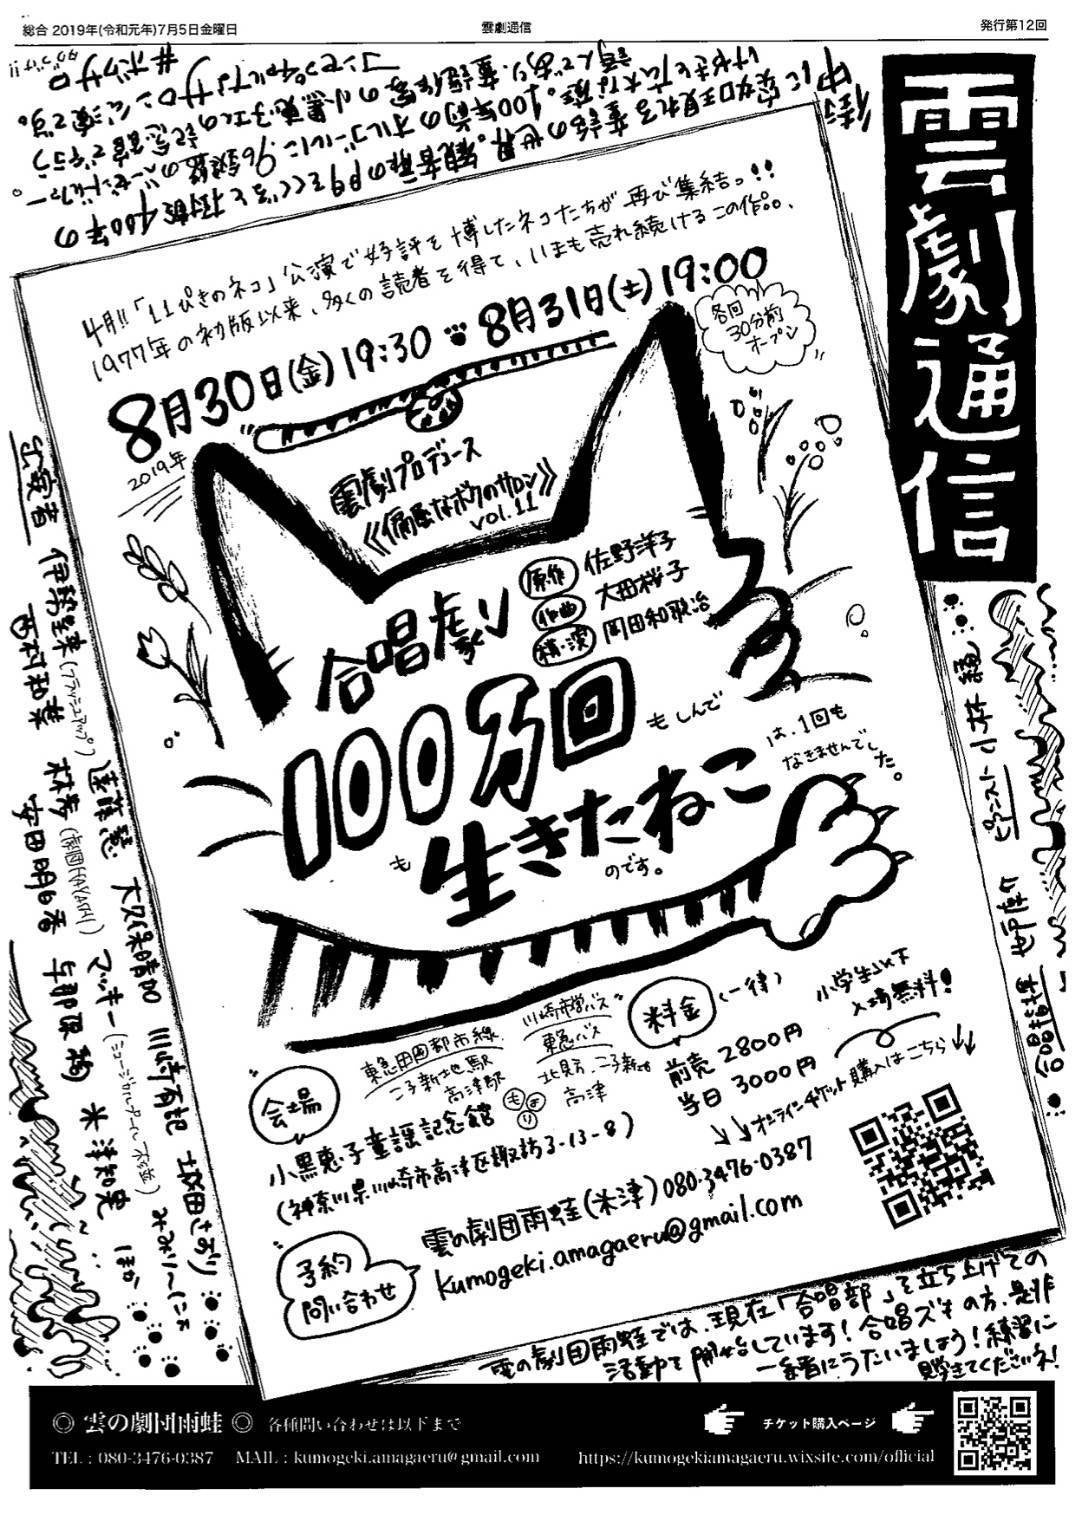 総合 2019年(令和元年)7月5日金曜日
雲劇通信
発行第12回
雲劇通信
4月!!「11ぴきのネコ」公演で好評を博したネコたちが再び集結っ!!
1977年の初版以来、多くの読者を得て、いまも売れ続けるこの作品。
8月30日(金)19:30
8月31日(土)19:00
2019年
各回
30分前
オープン
雲劇プロデュース
《偏屈なボクのサロン》
vol.11
原作 佐野洋子
作曲 大田桜子
構・演 岡田和歌冶
合唱劇
100万回
もしんで
も
生きたねこ
は、1回も
なきませんでした。
のです。
会場
東急田園都市線
二子新地駅
高津駅
川崎市営バス
東急バス
北見方、二子新地
高津
より
小黒恵子童謡記念館
(神奈川県川崎市高津区諏訪3-13-8)
料金
(一律)
前売 2800円
当日 3000円
小学生以下
入場無料!
オンラインチケット購入はこちら
予約
問い合わせ
雲の劇団雨蛙(米津)080-3476-0387
kumogeki.amagaeru@gmail.com
出演者
西村和葉
(フラッシュアップ)
遠藤慧
大久保晴加
川崎有起
坂田さおり
(劇団HAYASHI)
マッキー
安田明日香
与那原
米津知実
ほか
ピアニスト
合唱指導
雲の劇団雨蛙では、現在「合唱部」を立ち上げての
活動を開始しています!合唱ズキの方、是非
一緒にうたいましょう!練習に
見学きてくださいネ!
#ボクサロ
◎ 雲の劇団雨蛙 ◎ 各種問い合わせは以下まで
TEL : 080-3476-0387 MAIL : kumogeki.amagaeru@gmail.com
チケット購入ページ
https://kumogekiamagaeru.wixsite.com/official